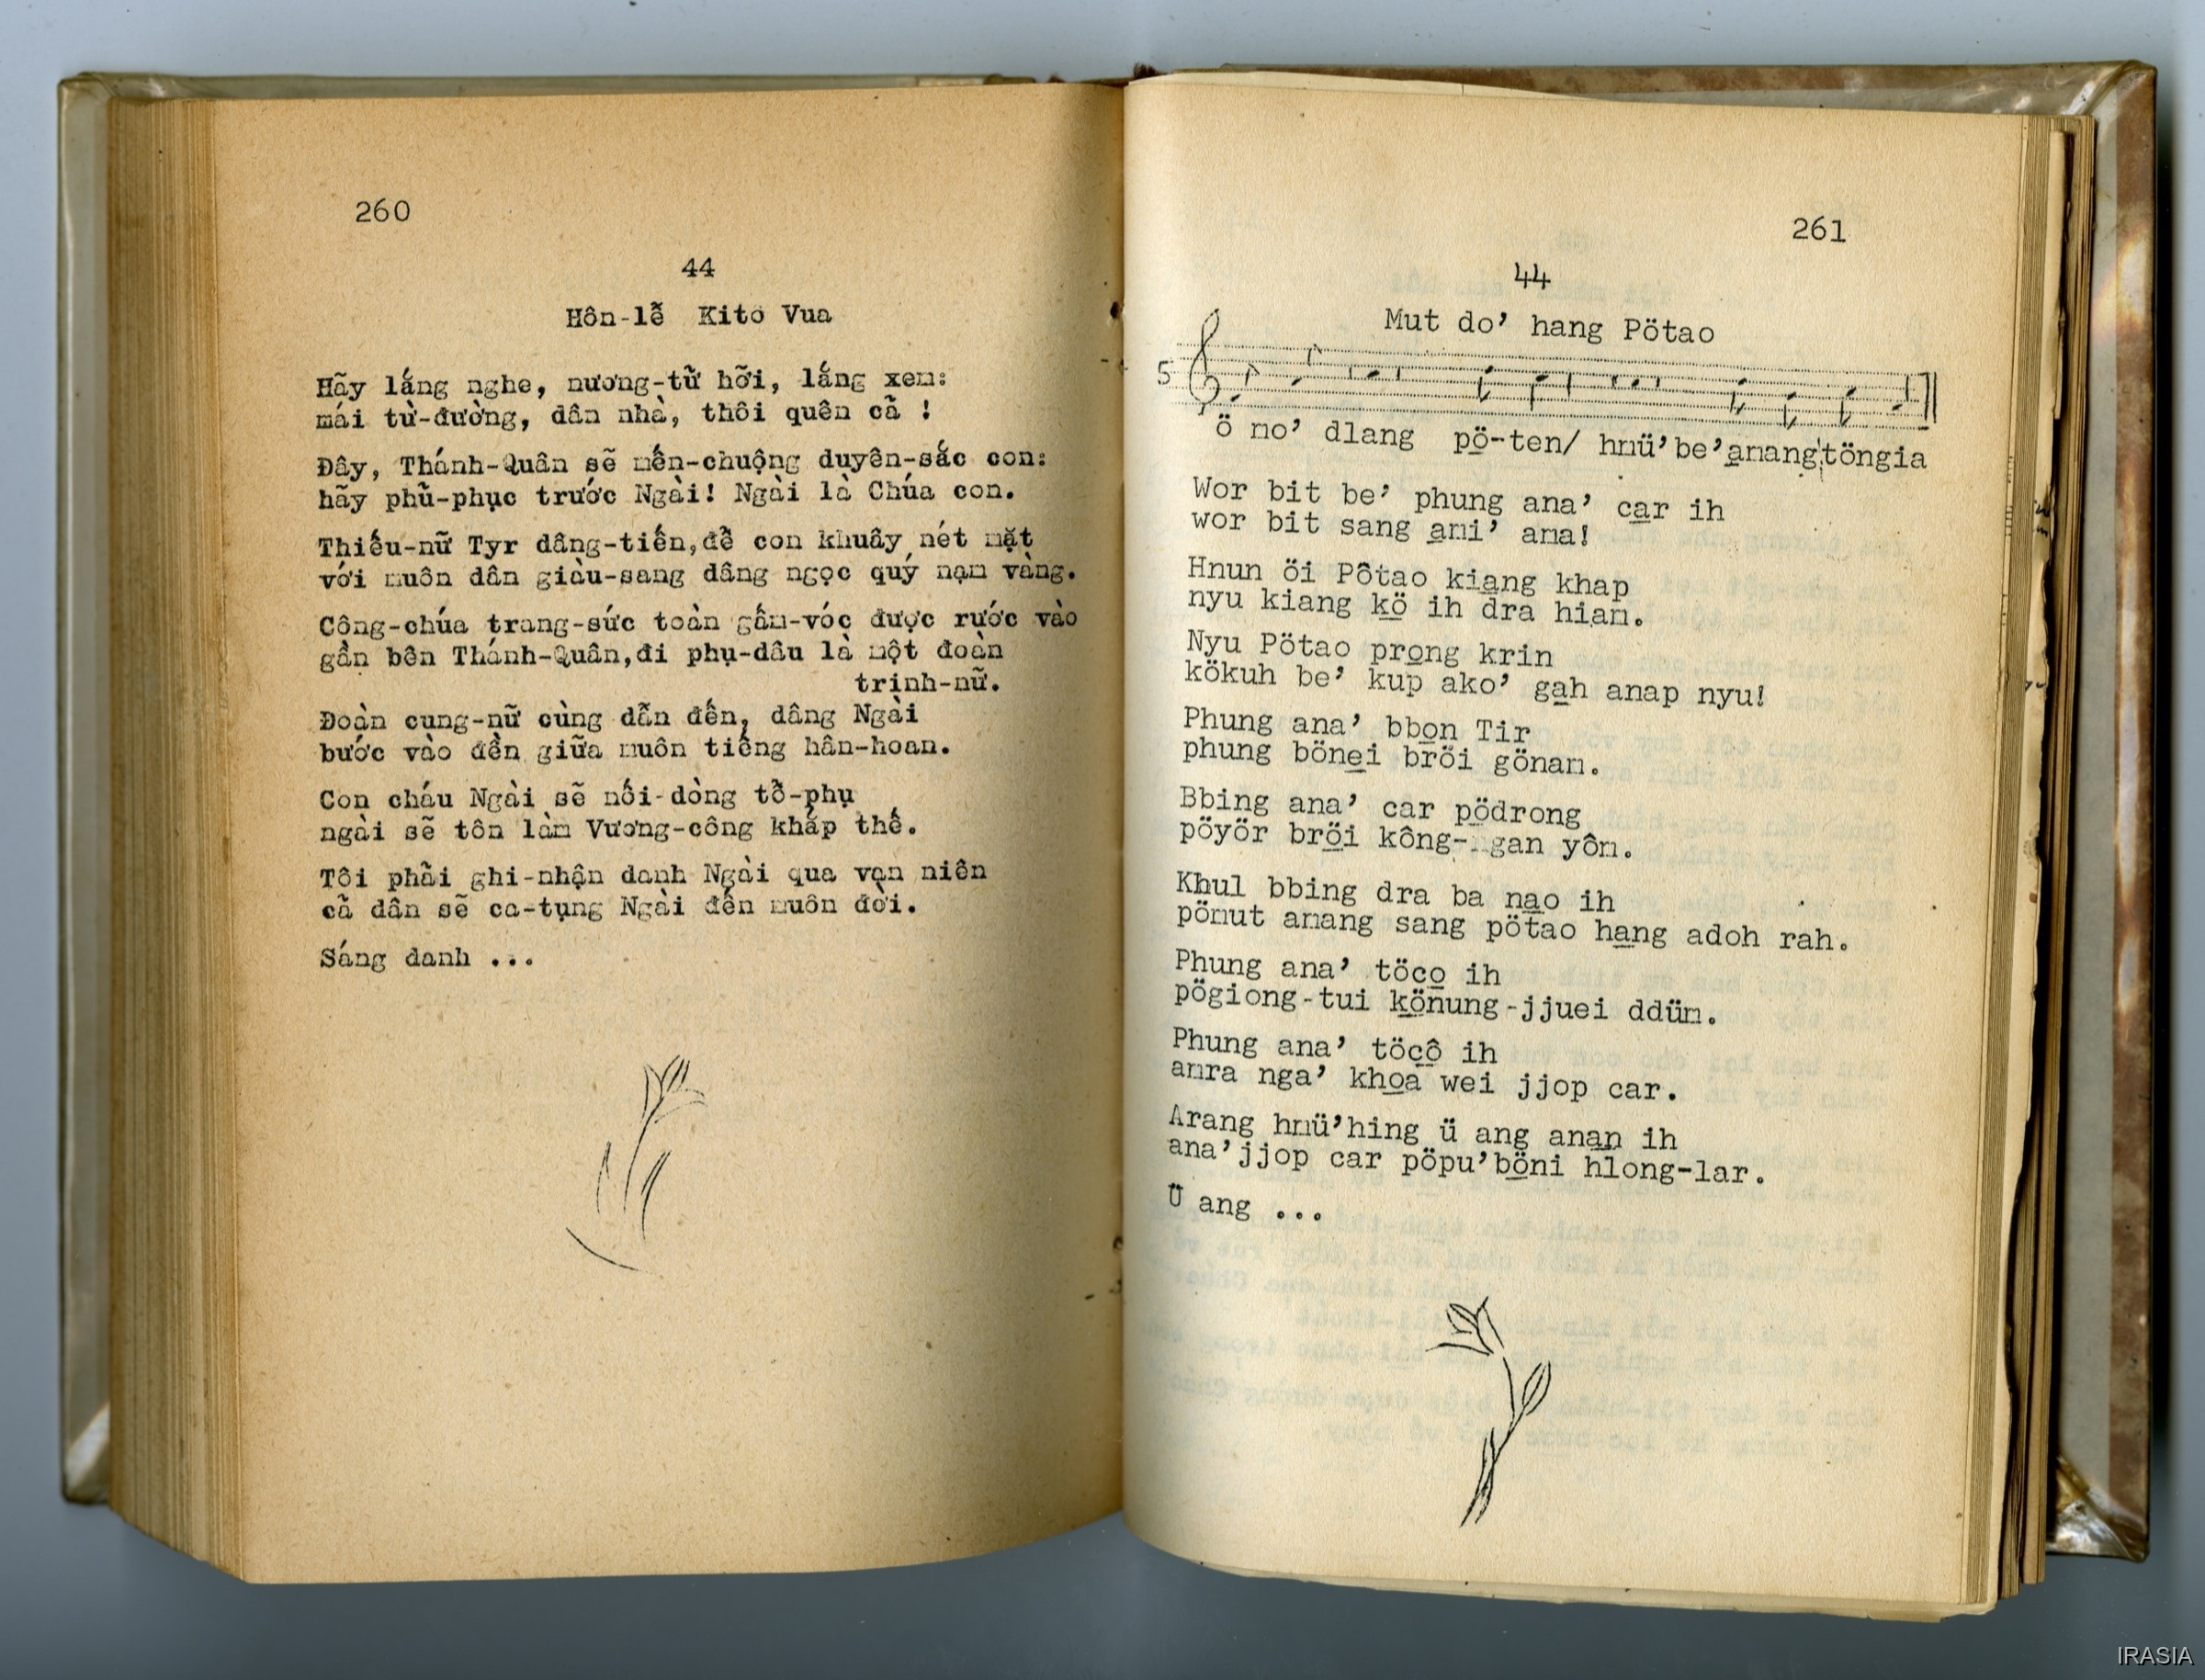 260
44
Hôn-lễ Kitô Vua
Hãy lắng nghe, nương-tử hỡi, lắng xem:
mái từ-đường, dân nhà, thôi quên cả !
Đây, Thánh-Quân sẽ mến-chuộng duyên-sắc con:
hãy phủ-phục trước Ngài! Ngài là Chúa con.
Thiếu-nữ Tyr dâng-tiến,để con khuây nét mặt
với muôn dân giàu-sang dâng ngọc quý nạm vàng.
Công-chúa trang-sức toàn gấm-vóc được rước vào
gần bên Thánh-Quân,đi phụ-dâu là một đoàn
trinh-nữ.
Đoàn cung-nữ cùng dẫn đến, dâng Ngài
bước vào đền giữa muôn tiếng hân-hoan.
Con cháu Ngài sẽ nối-dòng tổ-phụ
ngài sẽ tôn làm Vương-công khắp thế.
Tôi phải ghi-nhận danh Ngài qua vạn niên
cả dân sẽ ca-tụng Ngài đến muôn đời.
Sáng danh ...
261
44
Mut do’ hang Pötao
5
Ö mo’ dlang pö-ten/ hmü’be’amang töngia
Wor bit be’ phung ana’ car ih
wor bit sang ami’ ama!
Hnun öi Pôtao kiang khap
nyu kiang kö ih dra hiam.
Nyu Pötao prong krin
kökuh be’ kup ako’ gah anap nyu!
Phung ana’ bbon Tir
phung bönei bröi gönam.
Bbing ana’ car pödrong
pöyör bröi kông-ngan yôm.
Khul bbing dra ba nao ih
pömut amang sang pötao hang adoh rah.
Phung ana’ töco ih
pögiong-tui könung-jjuei ddüm.
Phung ana’ töcô ih
amra nga’ khoa wei jjop car.
Arang hmü’hing ü ang anan ih
ana’jjop car pöpu’böni hlong-lar.
Ü ang ...
IRASIA